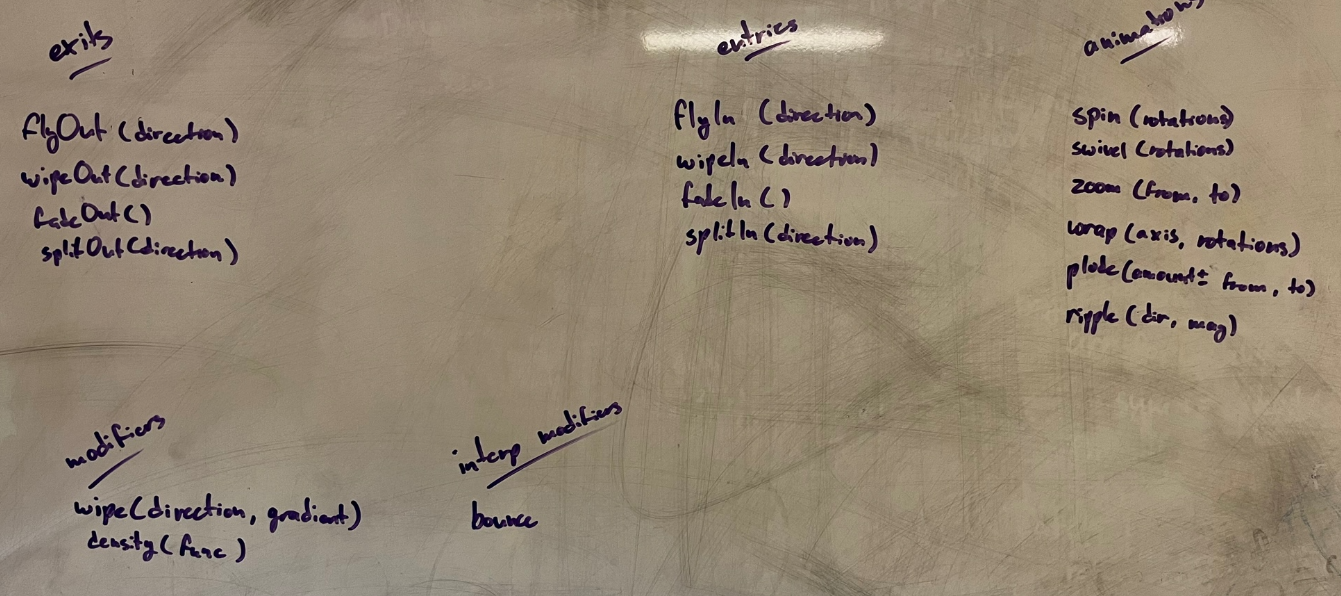 exits
flyOut (direction)
wipeOut (direction)
fadeOut ()
splitOut (direction)
entries
flyIn (direction)
wipeIn (direction)
fadeIn ()
splitIn (direction)
animations
spin (rotations)
swivel (rotations)
zoom (from, to)
wrap (axis, rotations)
plode (amount± from, to)
ripple (dir, mag)
modifiers
wipe (direction, gradient)
density (func)
interp modifiers
bounce